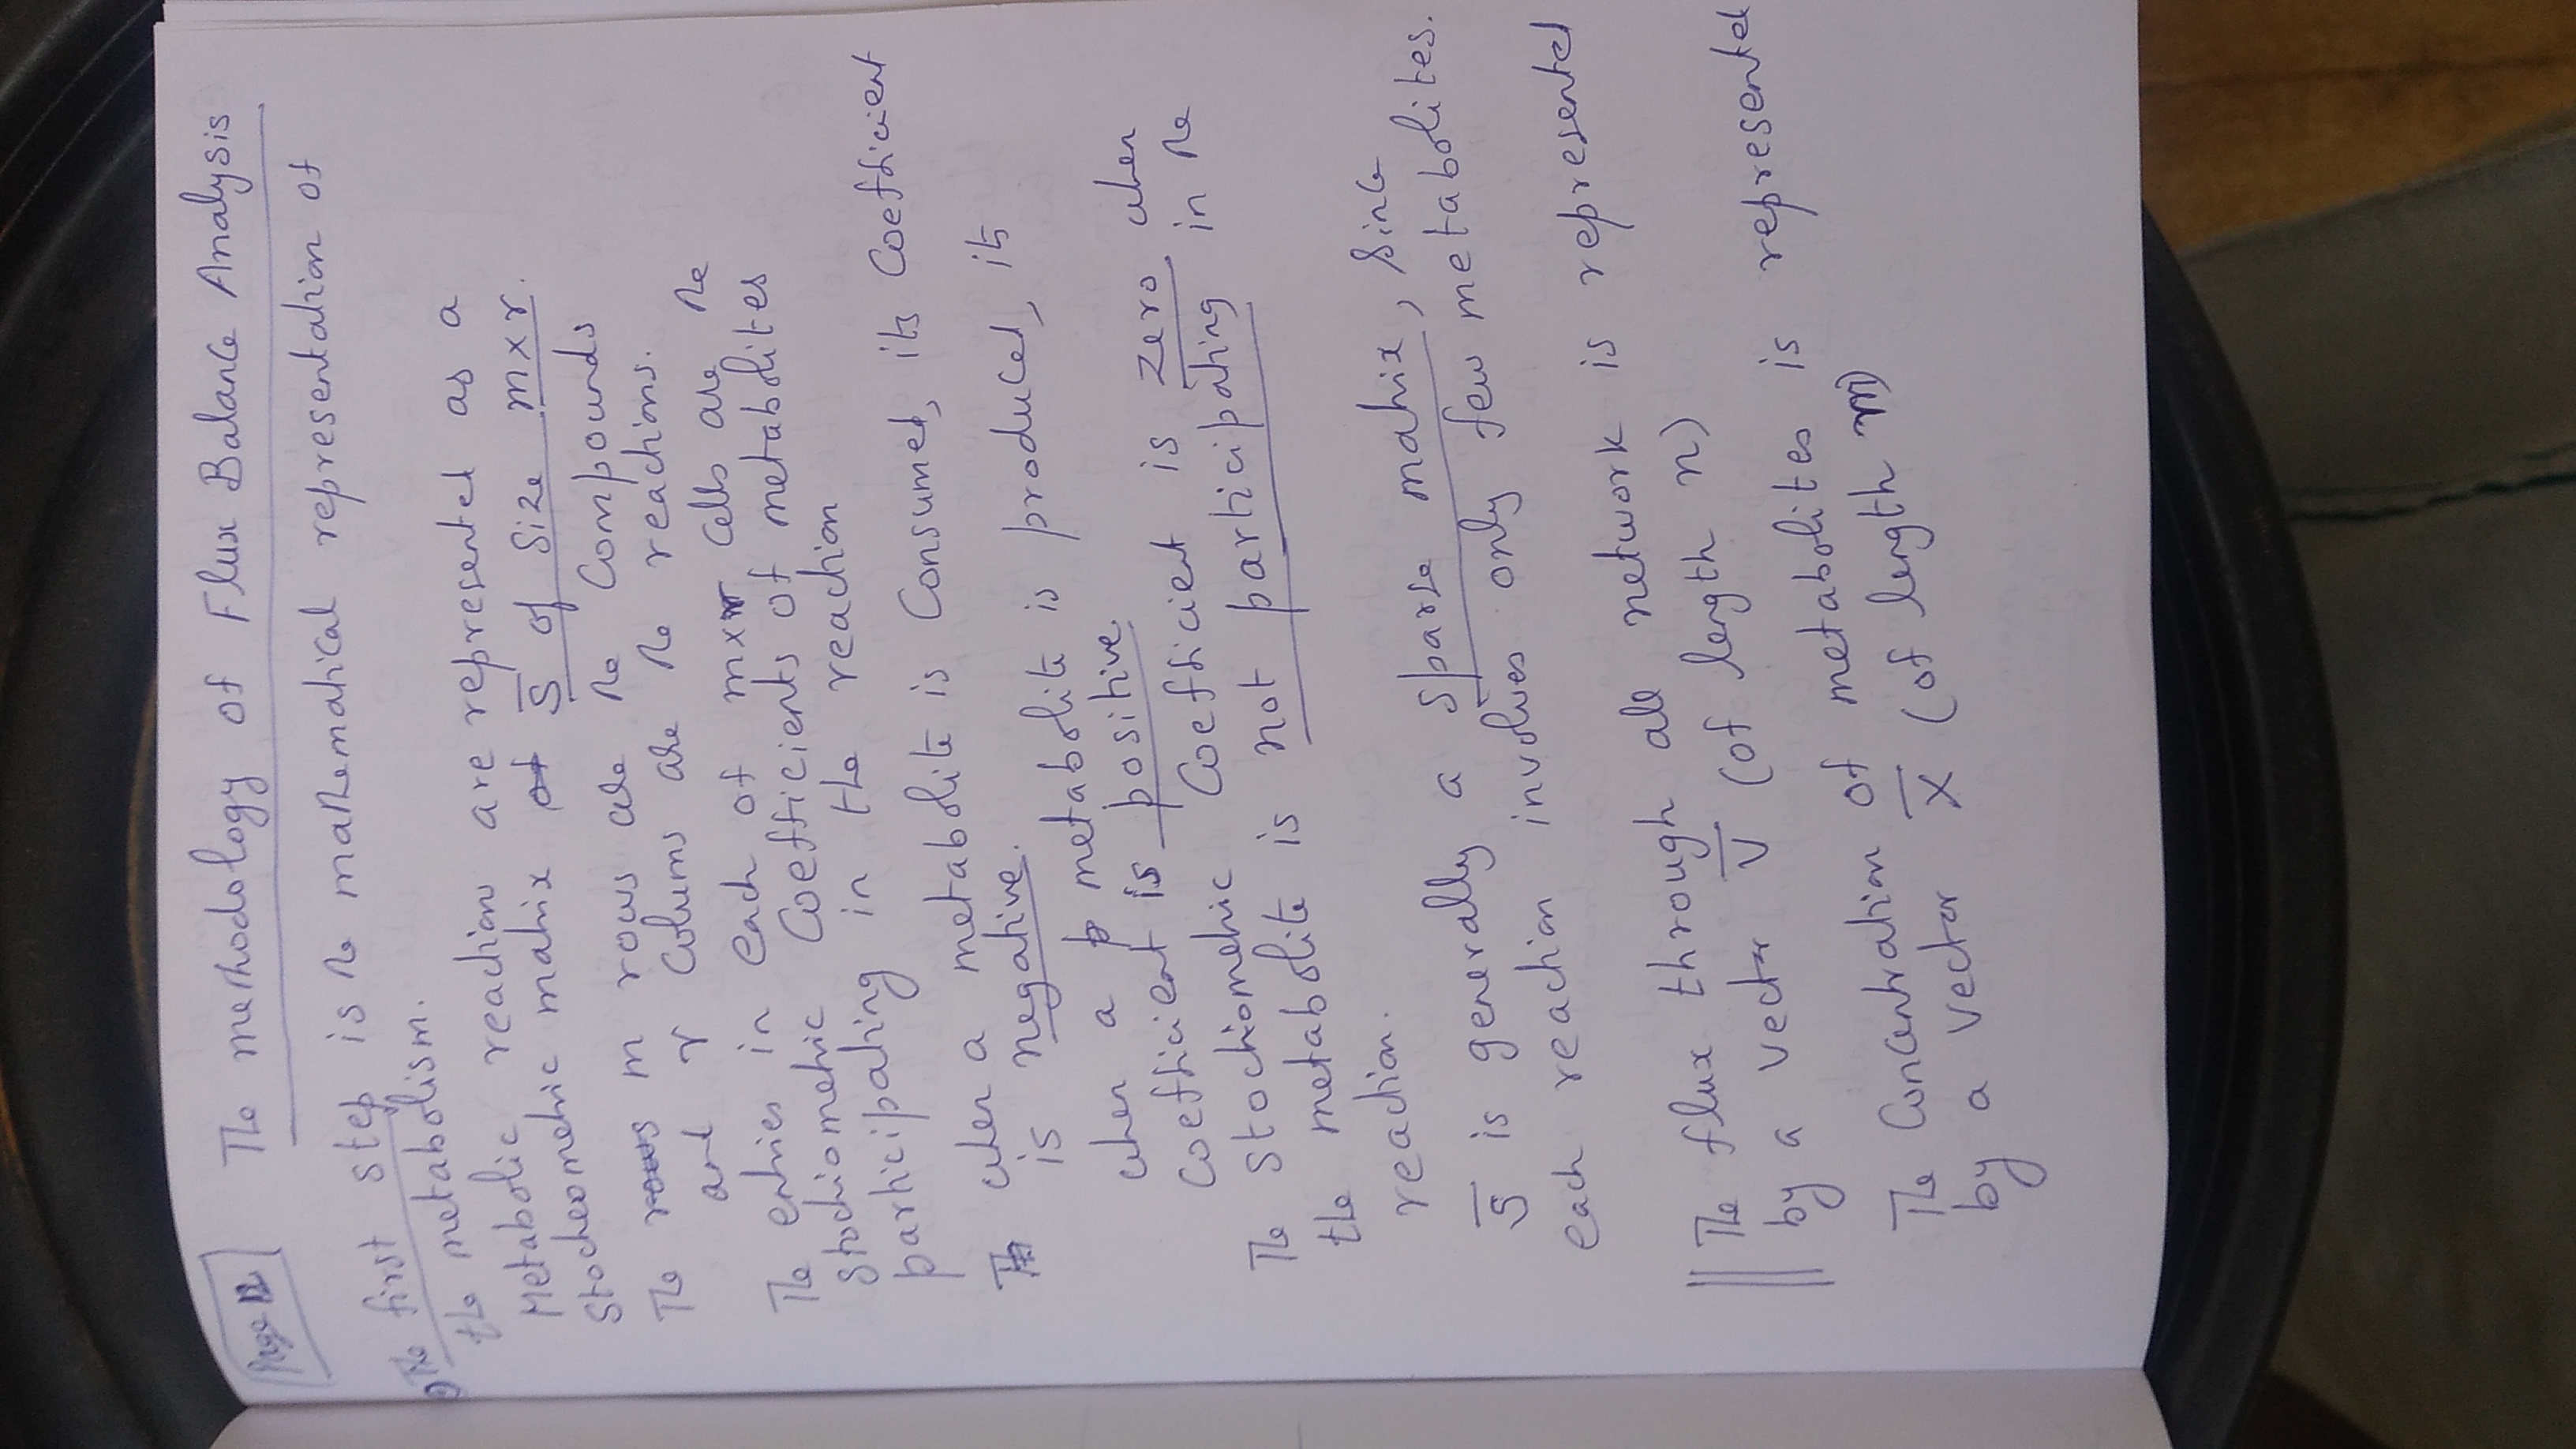 Page 12
The methodology of Flux Balance Analysis
The first step is the mathematical representation of
the metabolism.
Metabolic reactions are represented as a
Stocheometric matrix of S̅ of Size m×r.
The rows m rows are the Compounds
and r Colums are the reactions.
The entries in each of m×r Cells are the
Stochiometric Coefficients of metabolites
participating in the reaction
Th when a metabolite is Consumed, its Coefficient
is negative.
when a p metabolite is produced, its
Coefficient is positive.
The Stochiometric Coefficient is zero when
the metabolite is not participating in the
reaction.
S̅ is generally a sparse matrix, Since
each reaction involves only few metabolites.
The flux through all network is represented
by a vector V̅ (of length n)
The Concentration of metabolites is represented
by a vector X̅ (of length m)